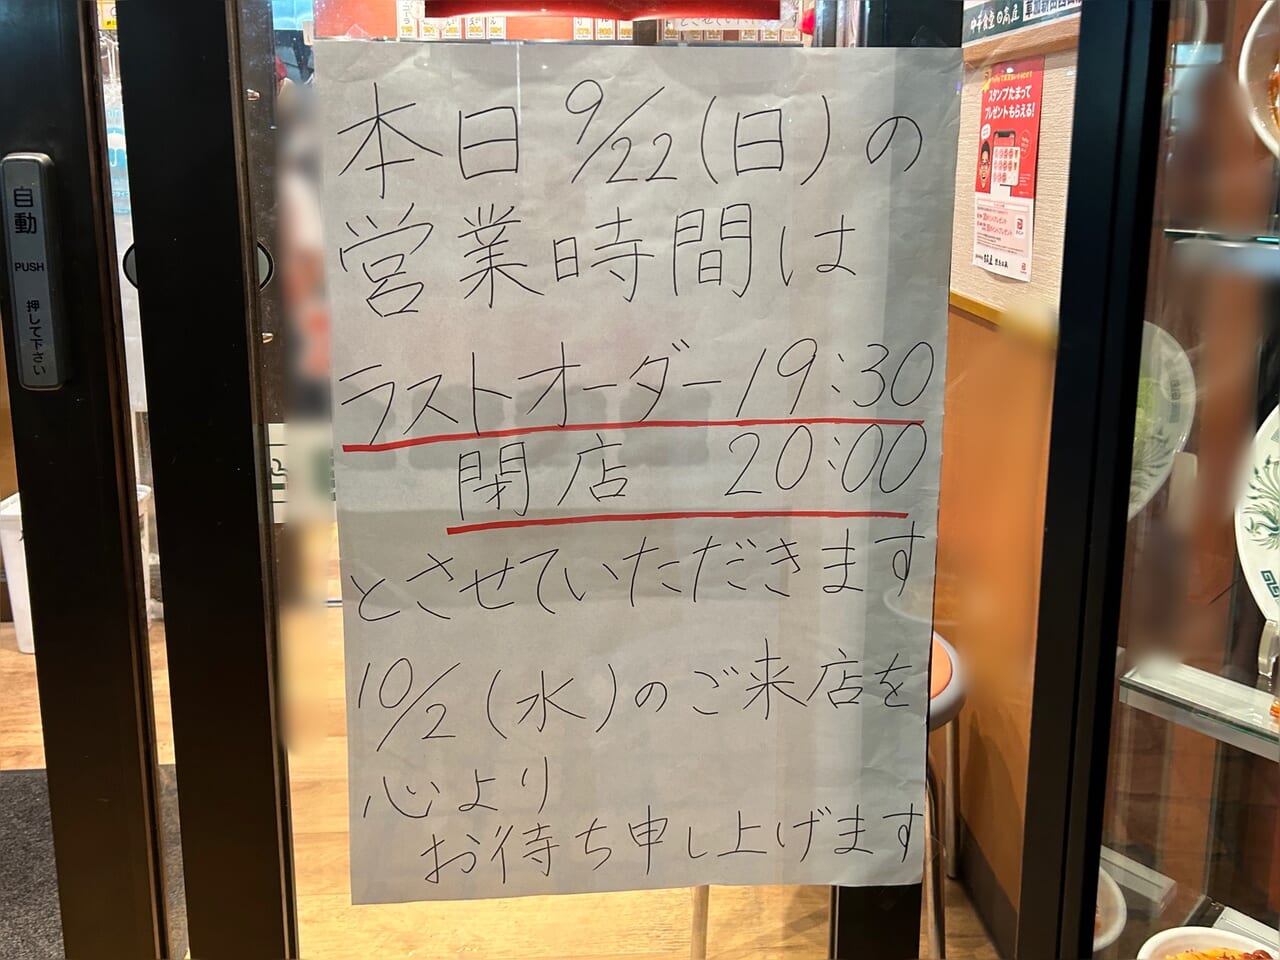 本日 9/22(日)の
営業時間は
ラストオーダー 19:30
閉店 20:00
とさせていただきます
10/2(水)のご来店を
心より
お待ち申し上げます
自動
PUSH
押して下さい
スタンプたまって
プレゼントもらえる!